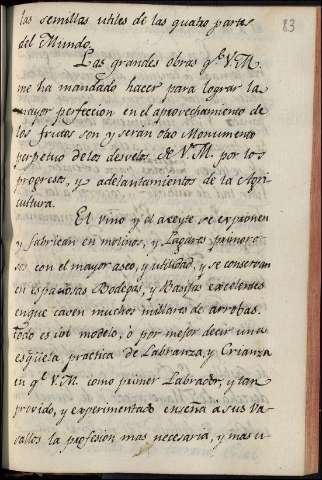 83
las semillas utiles de las quatro partes
del Mundo.
Las grandes obras q.e V.M.
me ha mandado hacer para lograr la
mayor perfeccion en el aprovechamiento de
los frutos son y serán otro Monumento
perpetuo de los desvelos de V.M. por los
progresos, y adelantamientos de la Agri-
cultura.
El vino y el aceyte, se exprimen
y fabrican en molinos, y Lagares primoro-
sos con el mayor aseo, y utilidad, y se conservan
en espaciosas Bodegas, y Basijas excelentes
en que caven muchos millares de arrobas.
todo es un modelo, ó por mejor decir una
esqüela practica de Labranza, y Crianza
en q.e V.M. como primer Labrador, y tan
provido, y experimentado enseña a sus Va-
sallos la profesion mas necesaria, y mas u-